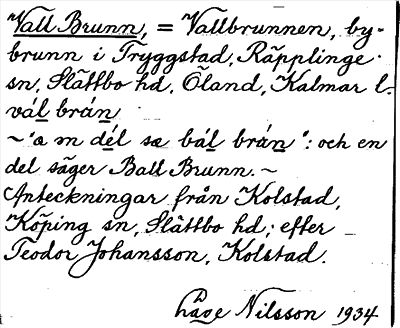 Vall Brunn, = Vallbrunnen, by-
brunn i Tryggstad, Räpplinge
sn, Slättbo hd, Öland, Kalmar l.
vál brán
~ "a m dél sæ bál brán": och en
del säger Ball Brunn. ~
Anteckningar från Kolstad,
Köping sn, Slättbo hd; efter
Teodor Johansson, Kolstad.
Håge Nilsson 1934